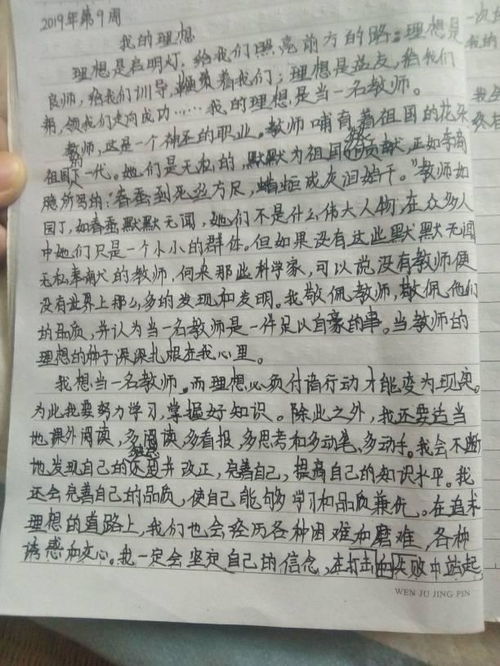 2019年第9周
我的理想
理想是启明灯,给我们照亮前方的路;理想是
良师,给我们训导,鞭策着我们;理想是益友,给我们
帮,领我们走向成功……我的理想是当一名教师。
教师,这是一个神圣的职业。教师哺育着祖国的花朵
祖国的下一代。她们是无私的,默默为祖国做贡献,正如李商
隐所写的:“春蚕到死丝方尽,蜡炬成灰泪始干。”教师如
园丁,如春蚕默默无闻,她们不是什么伟大人物,在众多人
中她们只是一个小小的群体。但如果没有这些默默无闻
无私奉献的教师,何来那些科学家,可以说没有教师便
没有世界上那么多的发现和发明。我敬佩教师,敬佩他们
的品质,并认为当一名教师是一件足以自豪的事。当教师的
理想的种子深深扎根在我心里。
我想当一名教师。而理想必须付诸行动才能变为现实。
为此我要努力学习,掌握好知识。除此之外,我还要适当
地课外阅读,多阅读,多看报,多思考和多动笔、多动手。我会不断
地发现自己的并改正,完善自己,提高自己的知识水平。我
还会完善自己的品质,使自己能够学习和品质兼优。在追求
理想的道路上,我们也会经历各种困难和磨难,各种
诱惑和灰心。我一定会坚定自己的信念,在打击和失败中站起
WEN JU JING PIN